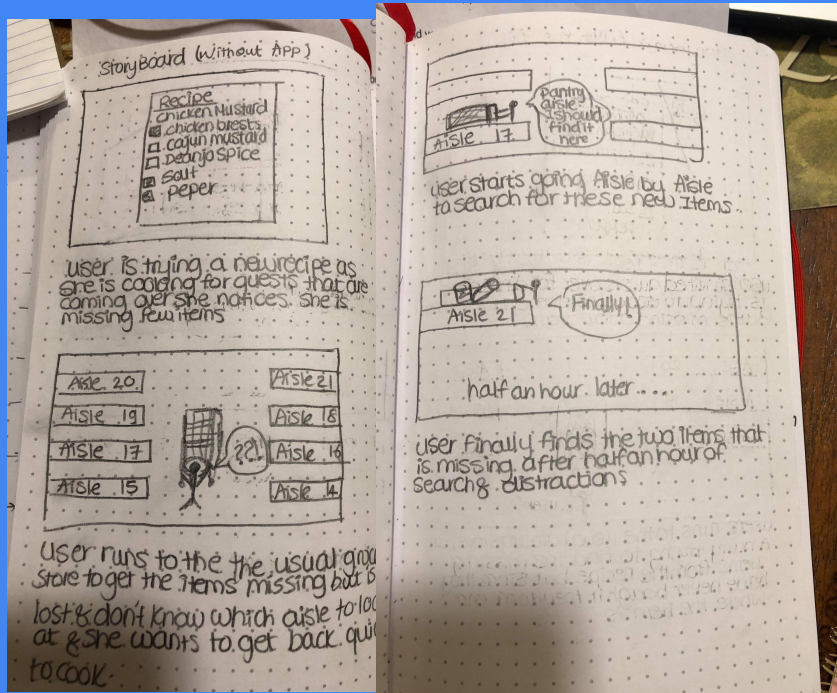 StoryBoard (without App)
Recipe
Chicken Mustard
chicken brests
cajun mustard
Deanjo Spice
Salt
peper
user is trying a new recipe as
she is cooking for guests that are
coming over she notices she is
missing few items
Aisle 20
Aisle 19
Aisle 17
Aisle 15
??!
Aisle 21
Aisle 18
Aisle 16
Aisle 14
user runs to the the usual
store to get the items missing but is
lost & don't know which aisle to
at & she wants to get back
to cook.
pantry
aisle
I should
find it
here
Aisle 17
user starts going Aisle by Aisle
to search for these new Items.
Finally!
Aisle 21
half an hour later....
user finally finds the two items that
is missing after half an hour of
search & distractions